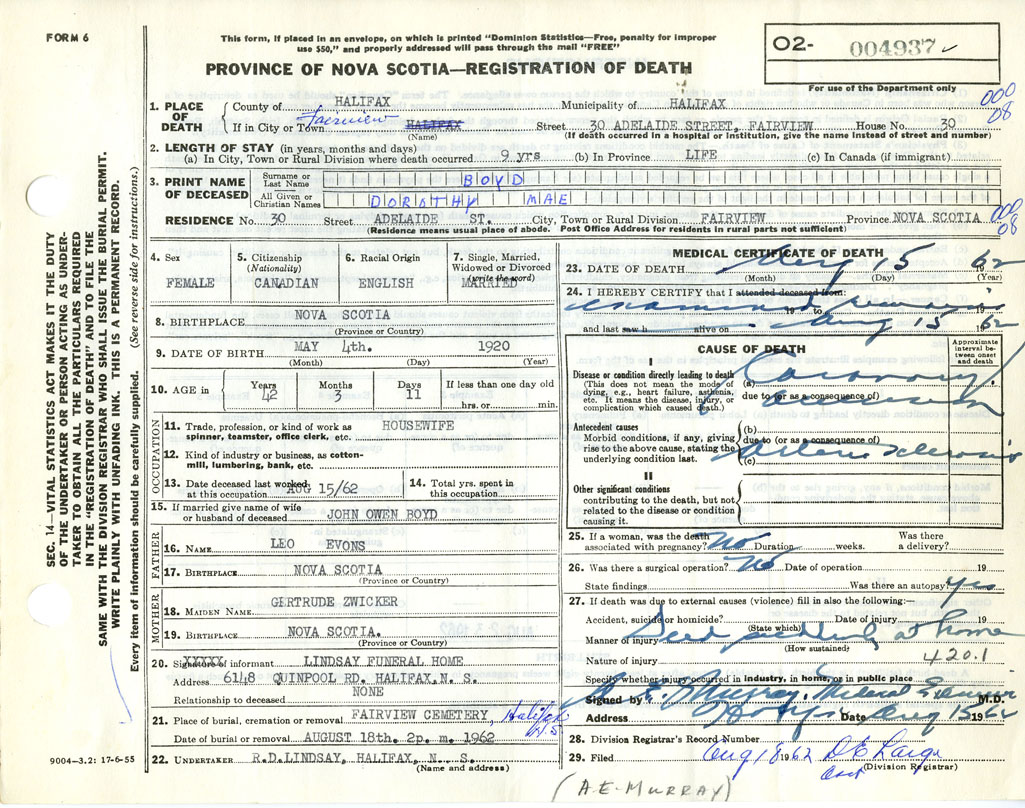 FORM 6
This form, if placed in an envelope, on which is printed "Dominion Statistics—Free, penalty for improper
use $50," and properly addressed will pass through the mail "FREE"
PROVINCE OF NOVA SCOTIA—REGISTRATION OF DEATH
O2- 004937
For use of the Department only
000
08
1. PLACE OF DEATH
County of HALIFAX Municipality of HALIFAX
If in City or Town Fairview HALIFAX Street 30 ADELAIDE STREET, FAIRVIEW House No. 30
(Name) (If death occurred in a hospital or institution, give the name instead of street and number)
2. LENGTH OF STAY (in years, months and days)
(a) In City, Town or Rural Division where death occurred 9 yrs (b) In Province LIFE (c) In Canada (if immigrant)
3. PRINT NAME OF DECEASED
Surname or Last Name BOYD
All Given or Christian Names DOROTHY MAE
RESIDENCE No. 30 Street ADELAIDE ST. City, Town or Rural Division FAIRVIEW Province NOVA SCOTIA
000
08
(Residence means usual place of abode. Post Office Address for residents in rural parts not sufficient)
4. Sex
FEMALE
5. Citizenship
(Nationality)
CANADIAN
6. Racial Origin
ENGLISH
7. Single, Married,
Widowed or Divorced
(write the word)
MARRIED
8. BIRTHPLACE NOVA SCOTIA
(Province or Country)
9. DATE OF BIRTH MAY 4th. 1920
(Month) (Day) (Year)
10. AGE in Years 42 Months 3 Days 11 If less than one day old
hrs. or min.
OCCUPATION
11. Trade, profession, or kind of work as HOUSEWIFE
spinner, teamster, office clerk, etc.
12. Kind of industry or business, as cotton-
mill, lumbering, bank, etc.
13. Date deceased last worked
at this occupation AUG 15/62
14. Total yrs. spent in
this occupation
15. If married give name of wife
or husband of deceased JOHN OWEN BOYD
FATHER
16. NAME LEO EVONS
17. BIRTHPLACE NOVA SCOTIA
(Province or Country)
MOTHER
18. MAIDEN NAME GERTRUDE ZWICKER
19. BIRTHPLACE NOVA SCOTIA.
(Province or Country)
20. Signature of informant LINDSAY FUNERAL HOME
XXXXX
Address 6148 QUINPOOL RD. HALIFAX,N. S.
Relationship to deceased NONE
21. Place of burial, cremation or removal FAIRVIEW CEMETERY, Halifax N.S.
Date of burial or removal AUGUST 18th. 2p. m. 1962
22. UNDERTAKER R.D.LINDSAY, HALIFAX, N. S.
(Name and address)
MEDICAL CERTIFICATE OF DEATH
23. DATE OF DEATH Aug 15 1962
(Month) (Day) (Year)
24. I HEREBY CERTIFY that I attended deceased from:
examined remains 19 to 19
and last saw h alive on Aug 15 1962
CAUSE OF DEATH
Approximate
interval be-
tween onset
and death
I
Disease or condition directly leading to death
(This does not mean the mode of
dying, e.g., heart failure, asthenia,
etc. It means the disease, injury, or
complication which caused death.)
(a) Coronary
due to (or as a consequence of)
Antecedent causes
Morbid conditions, if any, giving
rise to the above cause, stating the
underlying condition last.
(b)
due to (or as a consequence of)
(c) Arterio Sclerosis
II
Other significant conditions
contributing to the death, but not
related to the disease or condition
causing it.
25. If a woman, was the death
associated with pregnancy? No Duration weeks. Was there
a delivery?
26. Was there a surgical operation? No Date of operation 19
State findings Was there an autopsy? Yes
27. If death was due to external causes (violence) fill in also the following:—
Accident, suicide or homicide? Date of injury 19
(State which)
Manner of injury Died suddenly at home
(How sustained)
Nature of injury 420.1
Specify whether injury occurred in industry, in home, or in public place
Signed by A E Murray. Medical Examiner M.D.
Address Date Aug 15 1962
28. Division Registrar's Record Number
29. Filed Aug 18 1962 D E Large
(Division Registrar)
(A.E. MURRAY)
SEC. 14—VITAL STATISTICS ACT MAKES IT THE DUTY
OF THE UNDERTAKER OR PERSON ACTING AS UNDER-
TAKER TO OBTAIN ALL THE PARTICULARS REQUIRED
IN THE "REGISTRATION OF DEATH" AND TO FILE THE
SAME WITH THE DIVISION REGISTRAR WHO SHALL ISSUE THE BURIAL PERMIT.
WRITE PLAINLY WITH UNFADING INK. THIS IS A PERMANENT RECORD.
Every item of information should be carefully supplied. (See reverse side for instructions.)
9004-3.2: 17-6-55